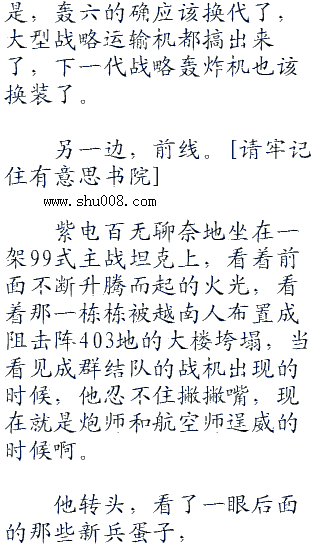 是，轰六的确应该换代了，
大型战略运输机都搞出来
了，下一代战略轰炸机也该
换装了。
另一边，前线。[请牢记
住有意思书院]
www.shu008.com
紫电百无聊奈地坐在一
架99式主战坦克上，看着前
面不断升腾而起的火光，看
着那一栋栋被越南人布置成
阻击阵403地的大楼垮塌，当
看见成群结队的战机出现的
时候，他忍不住撇撇嘴，现
在就是炮师和航空师逞威的
时候啊。
他转头，看了一眼后面
的那些新兵蛋子，